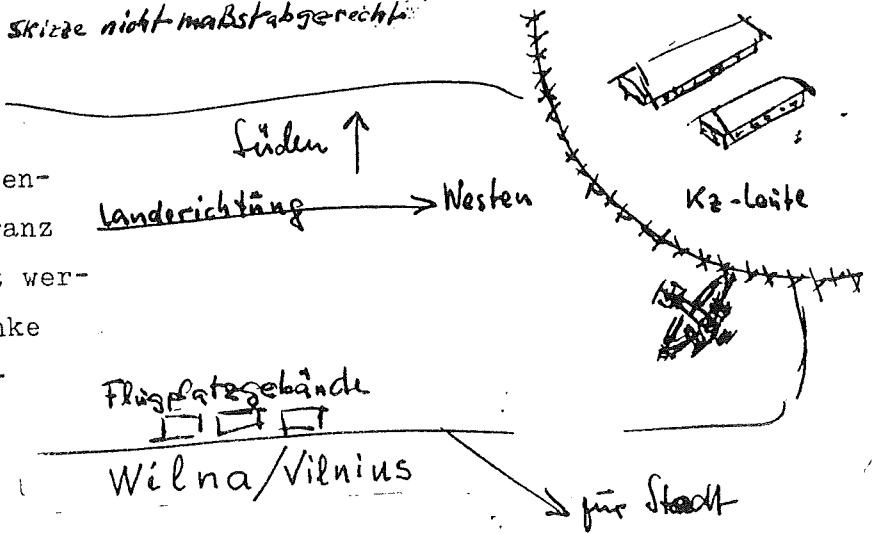 Skizze nicht maßstabgerecht
Süden
en-
Landerichtung
Westen
Kz-Leute
anz
wer-
nke
Flugplatzgebäude
Wilna/Vilnius
zur Stadt